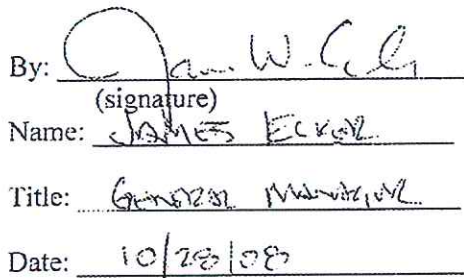 By:
(signature)
Name: JAMES ECKER
Title: GENERAL MANAGER
Date: 10/28/08